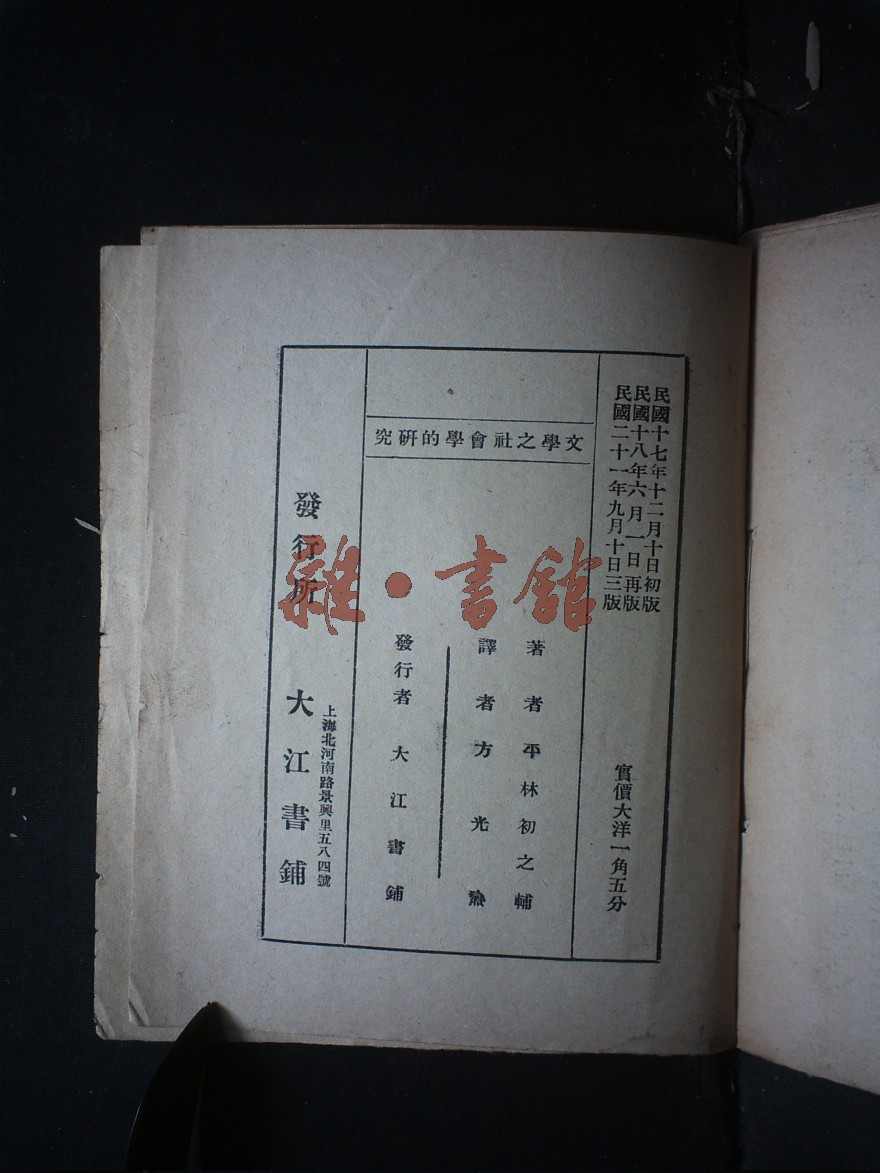 民國十七年十二月十日初版
民國十八年六月一日再版
民國二十一年九月十日三版
實價大洋一角五分
文學之社會學的研究
著者平林初之輔
譯者方光燾
發行者大江書鋪
上海北河南路景興里五八四號
發行所 大江書鋪
雜·書館